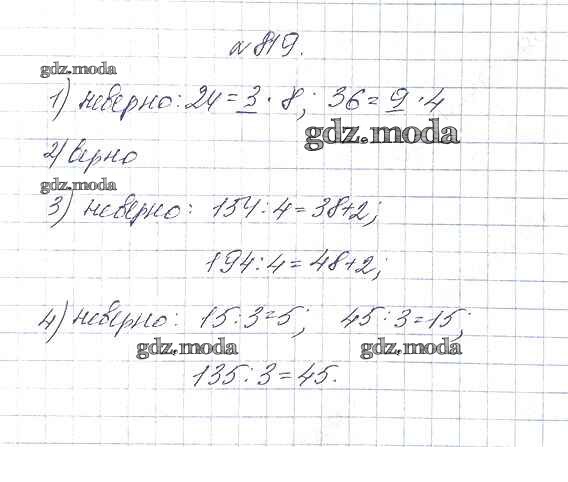 № 819.
gdz.moda
1) неверно: 24 = 3 · 8; 36 = 9 · 4
gdz.moda
2) верно
gdz.moda
3) неверно: 154 : 4 = 38+2;
194 : 4 = 48+2;
4) неверно: 15 : 3 = 5; 45 : 3 = 15;
gdz.moda gdz.moda
135 : 3 = 45.